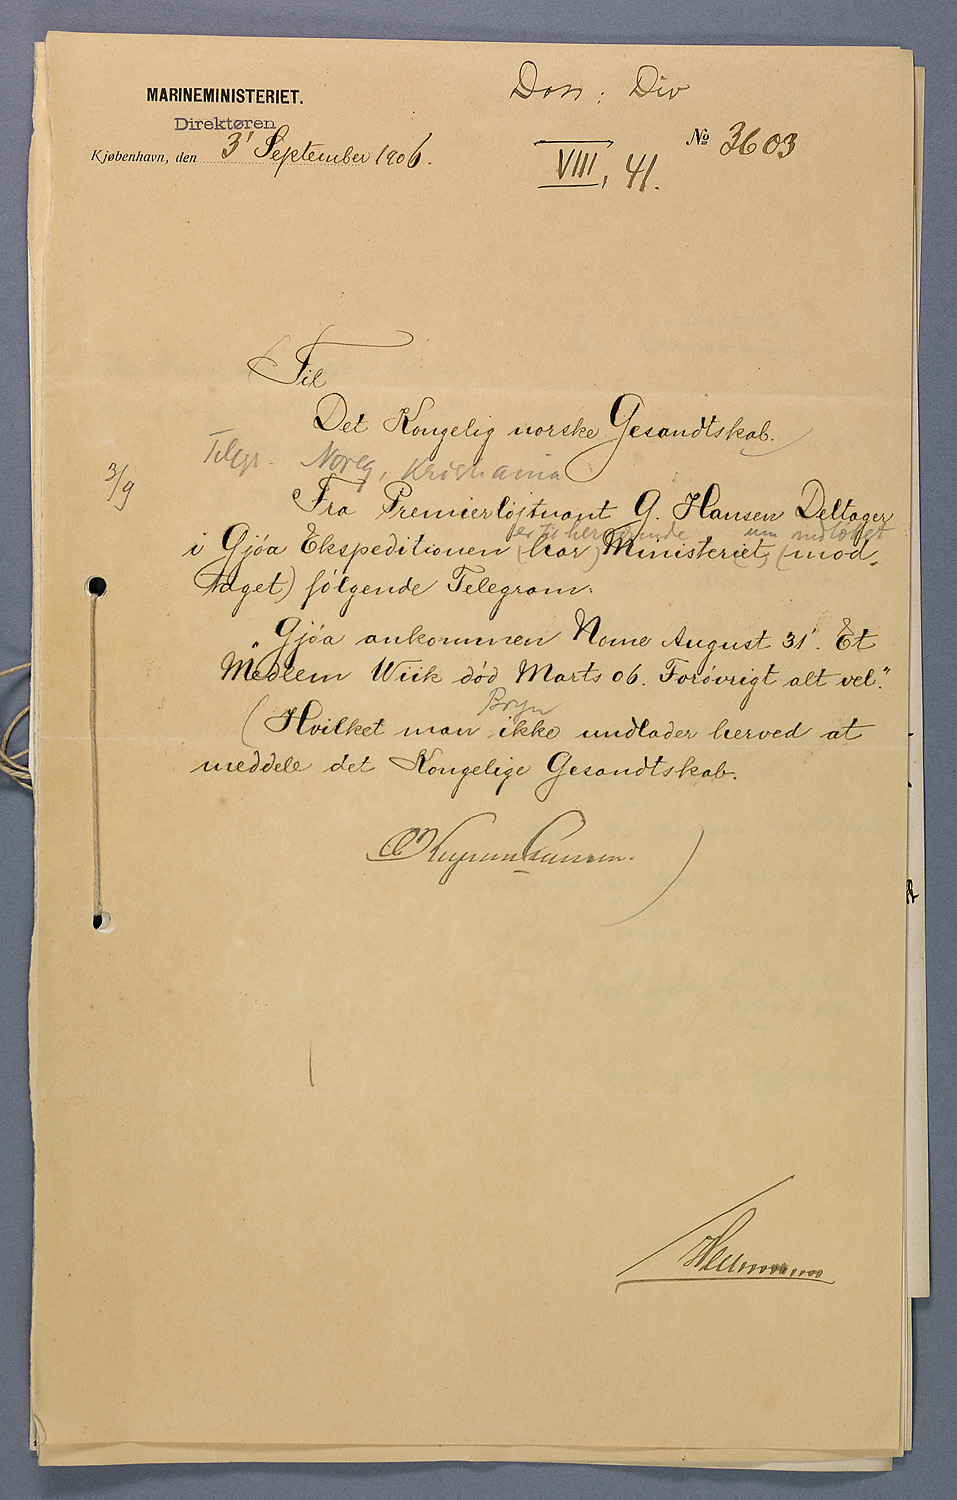 MARINEMINISTERIET.
Direktøren
Kjøbenhavn, den 3' September 1906.
Doss: Div
№ 3603
VIII, 41.
Til
Det Kongelig norske Gesandtskab.
Telegr. Noreg, Kristiania
3/9
Fra Premierløjtnant G. Hansen Deltager
er til herværende indløbet
i Gjöa Ekspeditionen (har) Ministeriet, (mod-
taget) følgende Telegram:
"Gjöa ankommen Nome August 31'. Et
Medlem Wiik död Marts 06. Forövrigt alt vel."
Bryn
(Hvilket man ikke undlader herved at
meddele det Kongelige Gesandtskab.